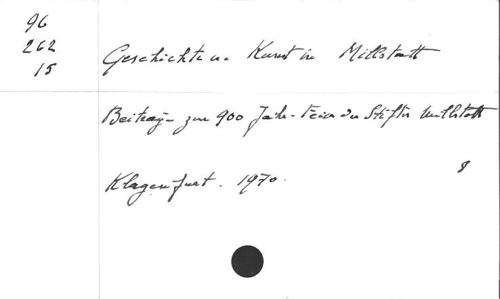 96
262
15
Geschichte u. Kunst in Millstatt
Beiträge zur 900 Jahr-Feier des Stiftes Millstatt
Klagenfurt. 1970.
8